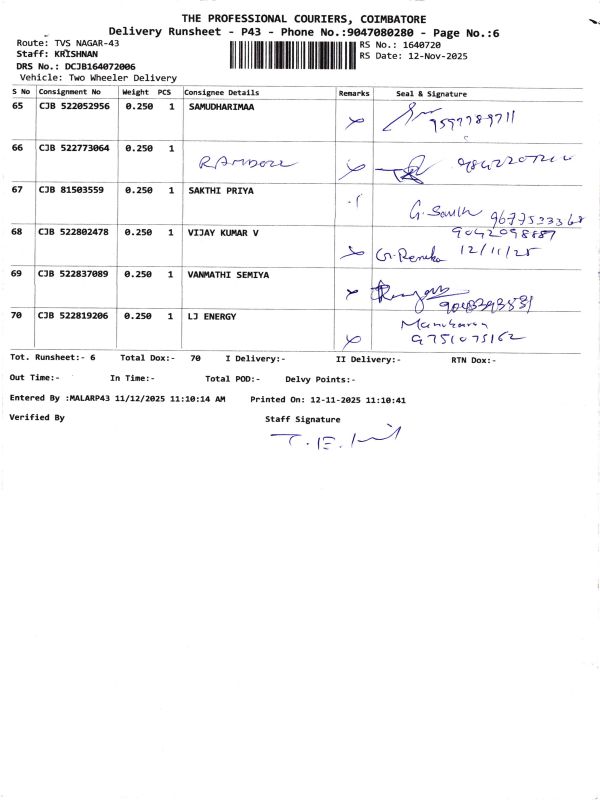 THE PROFESSIONAL COURIERS, COIMBATORE
Delivery Runsheet - P43 - Phone No.:9047080280 - Page No.:6
Route: TVS NAGAR-43
Staff: KRISHNAN
DRS No.: DCJB164072006
Vehicle: Two Wheeler Delivery
RS No.: 1640720
RS Date: 12-Nov-2025
S No Consignment No Weight PCS Consignee Details Remarks Seal & Signature
65 CJB 522052956 0.250 1 SAMUDHARIMAA
66 CJB 522773064 0.250 1
67 CJB 81503559 0.250 1 SAKTHI PRIYA
68 CJB 522802478 0.250 1 VIJAY KUMAR V 9042098887
12/11/25
69 CJB 522837089 0.250 1 VANMATHI SEMIYA
9043393531
70 CJB 522819206 0.250 1 LJ ENERGY
9751075162
Tot. Runsheet:- 6 Total Dox:- 70 I Delivery:- II Delivery:- RTN Dox:-
Out Time:- In Time:- Total POD:- Delvy Points:-
Entered By :MALARP43 11/12/2025 11:10:14 AM Printed On: 12-11-2025 11:10:41
Verified By Staff Signature